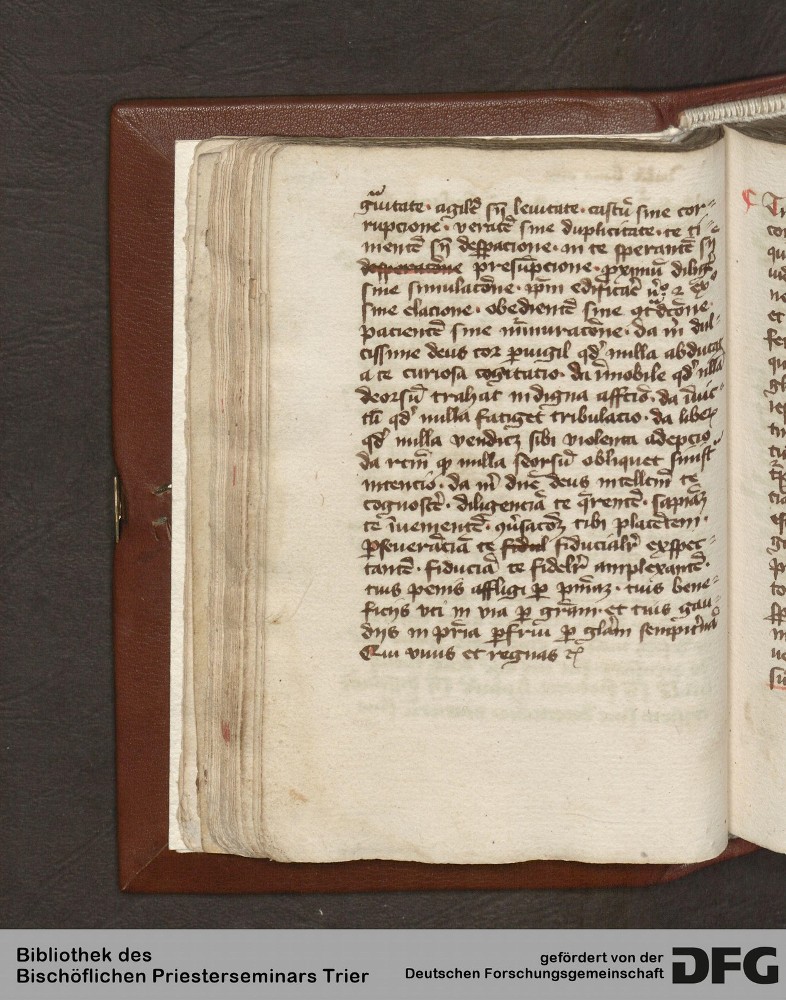 gᷓuitate · agilē sn̄ leuitate · castū sine cor=
rupcione · veracē sine duplicitate · te ti=
mentē sn̄ despp̄acione · in te sperantē sn̄
desperacōne presūpcione · proximū
sine simulacōne · ip̄m edificāre
sine elacione · obedientē sine
pacientē sine murmuracōne · da m̄ dul=
cissime deus cor puigil qd̓ nulla abducat
a te curiosa cogitatio · da īmobile qd̓ nulla
deorsū trahat indigna affctō · da īuic=
tū qd̓ nulla fatiget tribulacio · da liberū
qd̓ nulla vendicꝫ sibi violenta
da rctm̄ qd nulla seorsū obliquet sinistᵃ
intencio · da m̄ dn̄e deus intellctm̄ te
cognoscē · diligenciā te q̄rentē · sapiam̄
te īuenientē · ꝯuersacōꝫ tibi placētem ·
ꝑseuerāciā te fidul fiducialr̄ expec=
tantē · fiduciā te fidelr̄ amplexantē ·
tuis penis affligi ꝑ pn̄iaꝫ · tuis bene=
ficijs vti in via ꝑ grām · et tuis gau=
dijs in pr̄ia ꝑfrui ꝑ glām sempit̓nā
Qui viuis et regnas ⁊c̄
Bibliothek des
Bischöflichen Priesterseminars Trier
gefördert von der
Deutschen Forschungsgemeinschaft
DFG